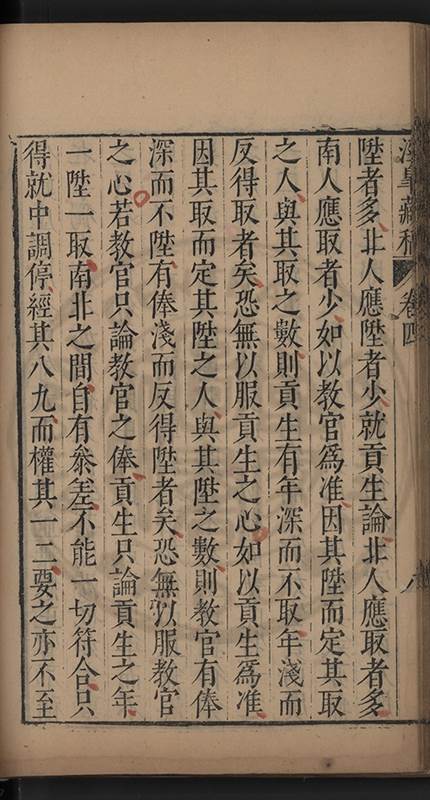 藏稿 卷四
陞者多北人應陞者少就貢生論北人應取者多
南人應取者少如以教官爲准因其陞而定其取
之人與其取之數則貢生有年深而不取年淺而
反得取者矣恐無以服貢生之心如以貢生爲准
因其取而定其陞之人與其陞之數則教官有俸
深而不陞有俸淺而反得陞者矣恐無以服教官
之心若教官只論教官之俸貢生只論貢生之年
一陞一取南北之間自有叅差不能一切符合只
得就中調停經其八九而權其一二要之亦不至